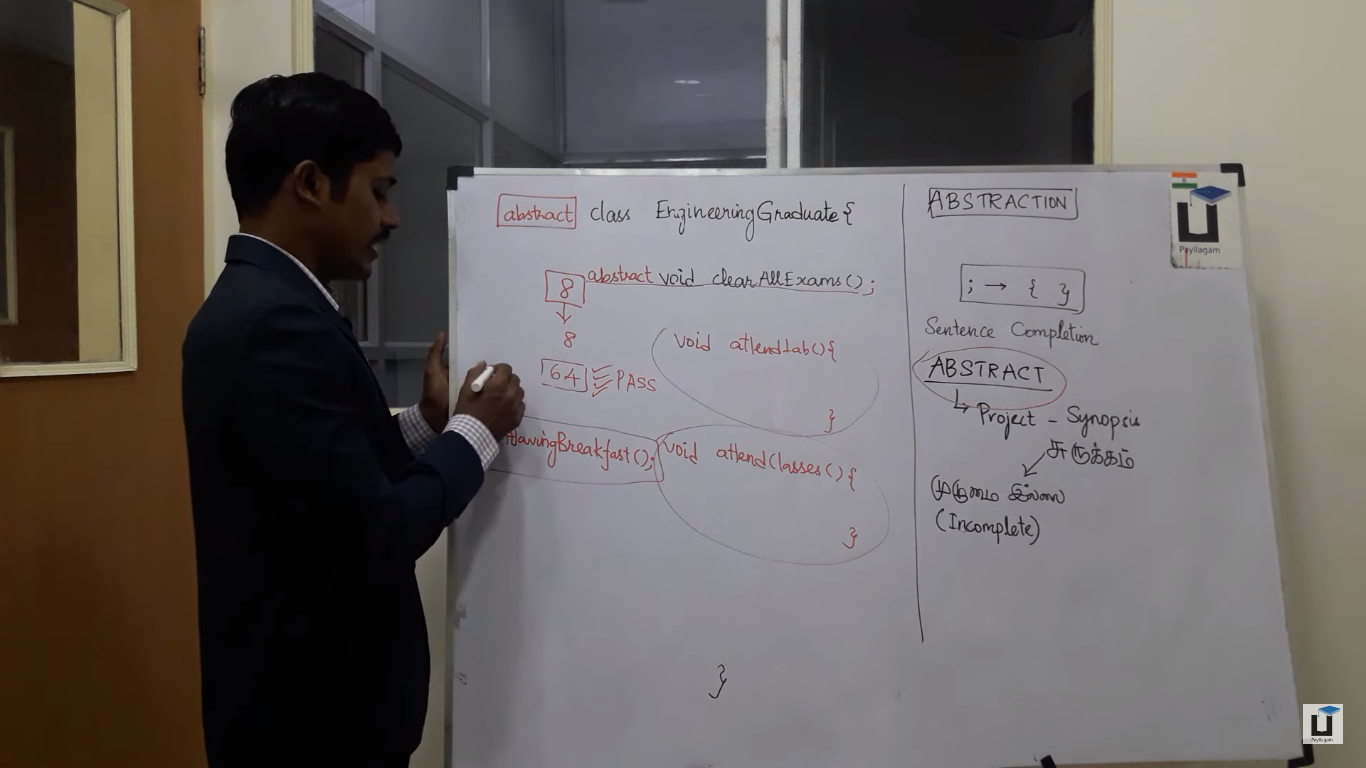 abstract class EngineeringGraduate{
8 abstract void clearAllExams();
8
64 PASS
void attendLab(){
}
HavingBreakfast();
void attendClasses(){
}
}
ABSTRACTION
; → { }
Sentence Completion
ABSTRACT
Project - Synopsis
சுருக்கம்
முழுமை இல்லை
(Incomplete)
Payilagam
Payilagam